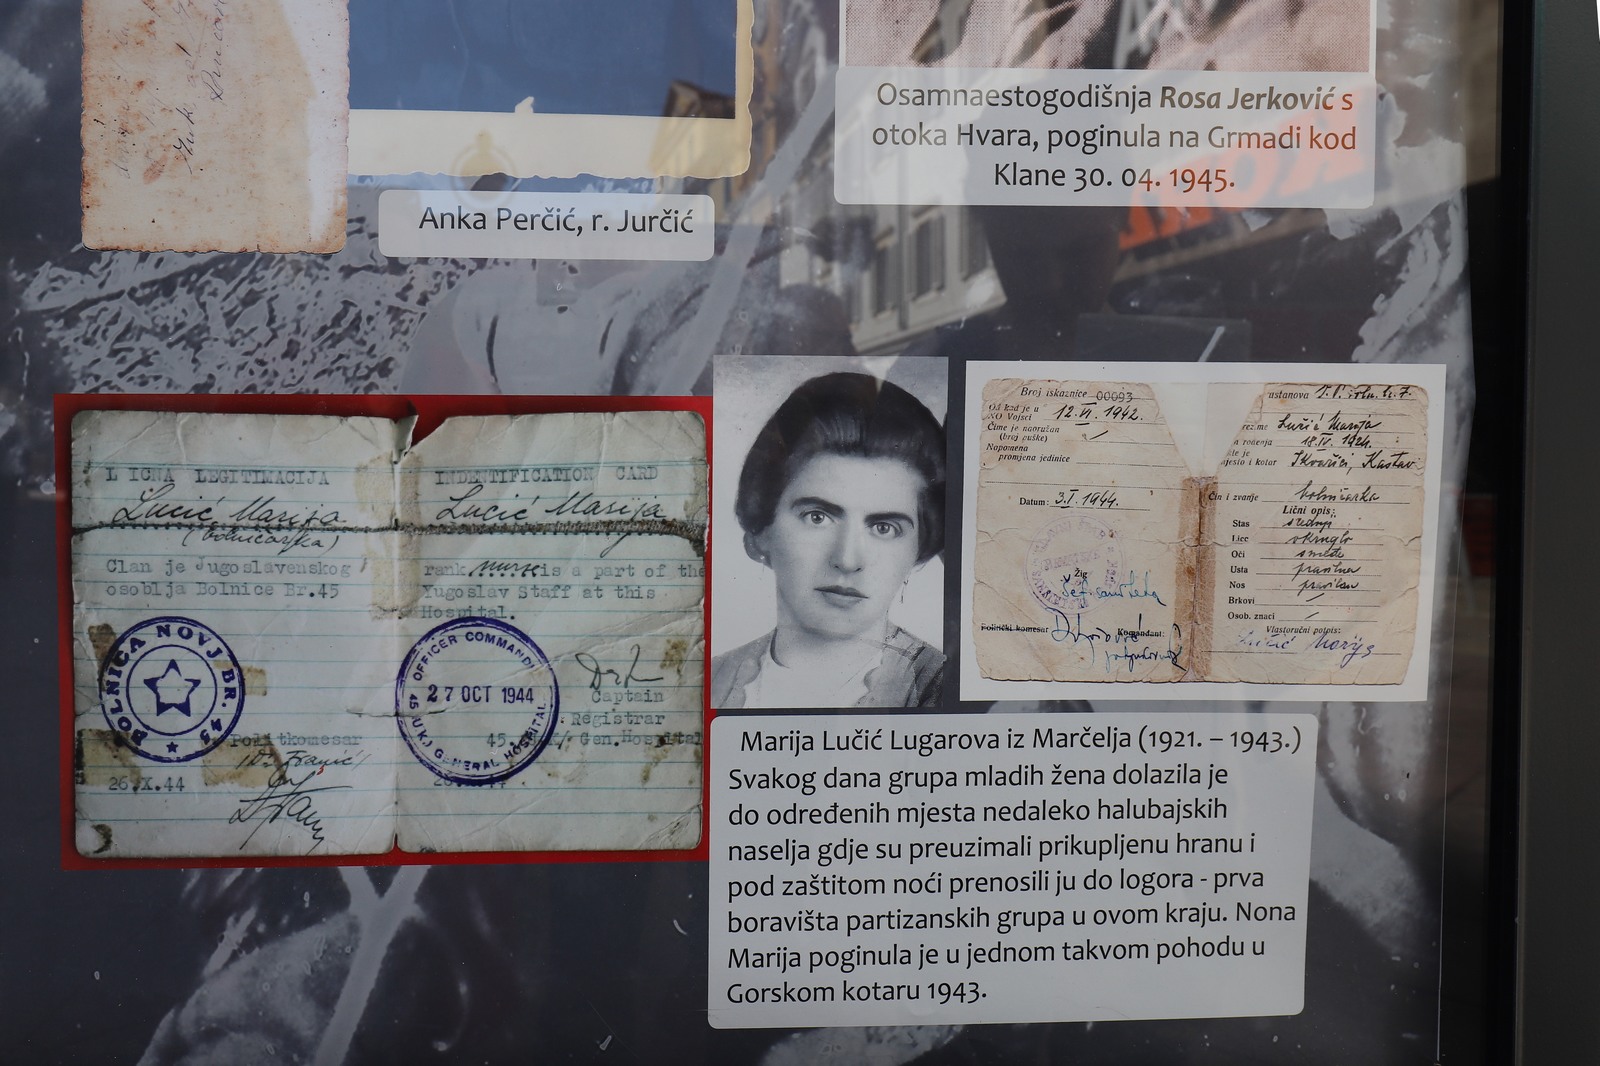 Anka Perčić, r. Jurčić
Osamnaestogodišnja Rosa Jerković s
otoka Hvara, poginula na Grmadi kod
Klane 30. 04. 1945.
L ICNA LEGITIMACIJA
Lucić Marija
(bolničarka)
Clan je Jugoslavenskog
osoblja Bolnice Br.45
BOLNICA NOVJ BR. 45
Politkomesar
26.X.44
INDENTIFICATION CARD
Lucić Marija
rank nurse is a part of the
Yugoslav Staff at this
Hospital.
OFFICER COMMANDI
27 OCT 1944
45 (U.K.) GENERAL HOSPITAL
Captain
Registrar
45. Gen. Hospital
Broj iskaznice 00093
Od kad je u
NO Vojsci 12.VI.1942.
Čime je naoružan
(broj puške)
Napomena
promjena jedinice
Datum: 3.I.1944.
Žig
Politički komesar
Komandant:
ustanova
Lučić Marija
rođenja 18.IV.1924.
mjesto i kotar Kastav
Čin i zvanje bolničarka
Lični opis:
Stas srednji
Lice okruglo
Oči smeđe
Usta pravilna
Nos pravilan
Brkovi
Osob. znaci
Vlastoručni potpis:
Lučić Marija
Marija Lučić Lugarova iz Marčelja (1921. – 1943.)
Svakog dana grupa mladih žena dolazila je
do određenih mjesta nedaleko halubajskih
naselja gdje su preuzimali prikupljenu hranu i
pod zaštitom noći prenosili ju do logora - prva
boravišta partizanskih grupa u ovom kraju. Nona
Marija poginula je u jednom takvom pohodu u
Gorskom kotaru 1943.